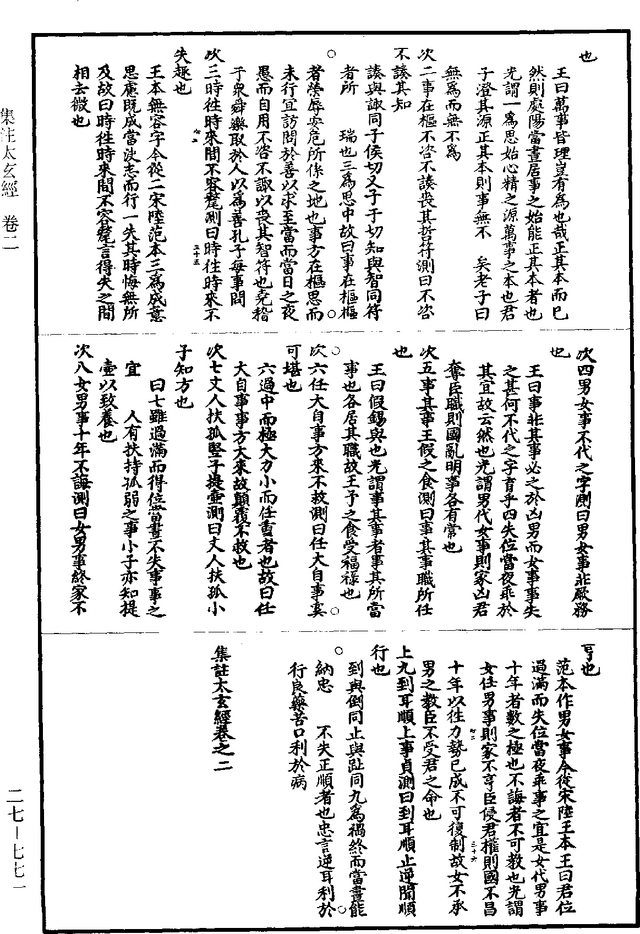 也
王曰萬事皆理豈有為也哉正其本而已
然則處陽當晝居事之始能正其本者也
光謂一為思始心精之源萬事之本也君
子澄其源正其本則事無不 矣老子曰
無為而無不為
次二事在樞不咨不諏喪其哲符測曰不咨
不諏其知
諏與諏同子侯切又子于切知與智同符
者所 瑞也三為思中故曰事在樞樞
○者榮辱安危所係之地也事方在樞思而
未行宜訪問於善以求至當而當日之夜
愚而自用不咨不諏以喪其智符也堯稽
于衆舜樂取於人以為善孔子每事問
次三時往時來間不容氂測曰時往時來不
失趣也
王本無容字今從二宋陸范本三為成意
思慮既成當決志而行一失其時悔無所
及故曰時往時來間不容氂言得失之間
相去微也
次四男女事不代之字測曰男女事非厥務
也
王曰事非其事必之於凶男而女事事失
之甚何不代之字育乎四失位當夜乖於
其宜故云然也光謂男代女事則家凶君
奪臣職則國亂明事各有常也
次五事其事王假之食測曰事其事職所任
也
王曰假錫與也光謂事其事者事其所當
事也各居其職故王予之食受福祿也
○次六任大自事方來不救測曰任大自事奚
可堪也
六過中而極大力小而任重者也故曰任
大自事事方大來故顛覆不救也
次七丈人扶孤豎子提壺測曰丈人扶孤小
子知方也
曰七雖過滿而得位當晝不失事事之
宜 人有扶持孤弱之事小子亦知提
壺以致養也
次八女男事十年不誨測曰女男事終家不
亨也
范本作男女事今從宋陸王本王曰君位
過滿而失位當夜乖事之宜是女代男事
十年者數之極也不誨者不可教也光謂
女任男事則家不亨臣侵君權則國不昌
十年以往力勢已成不可復制故女不承
男之教臣不受君之命也
上九到耳順上事貞測曰到耳順止逆聞順
行也
到與倒同止與趾同九為禍終而當晝能
○納忠 不失正順者也忠言逆耳利於
行良藥苦口利於病
集註太玄經卷之二
集注太玄經 卷二
二七—七七一